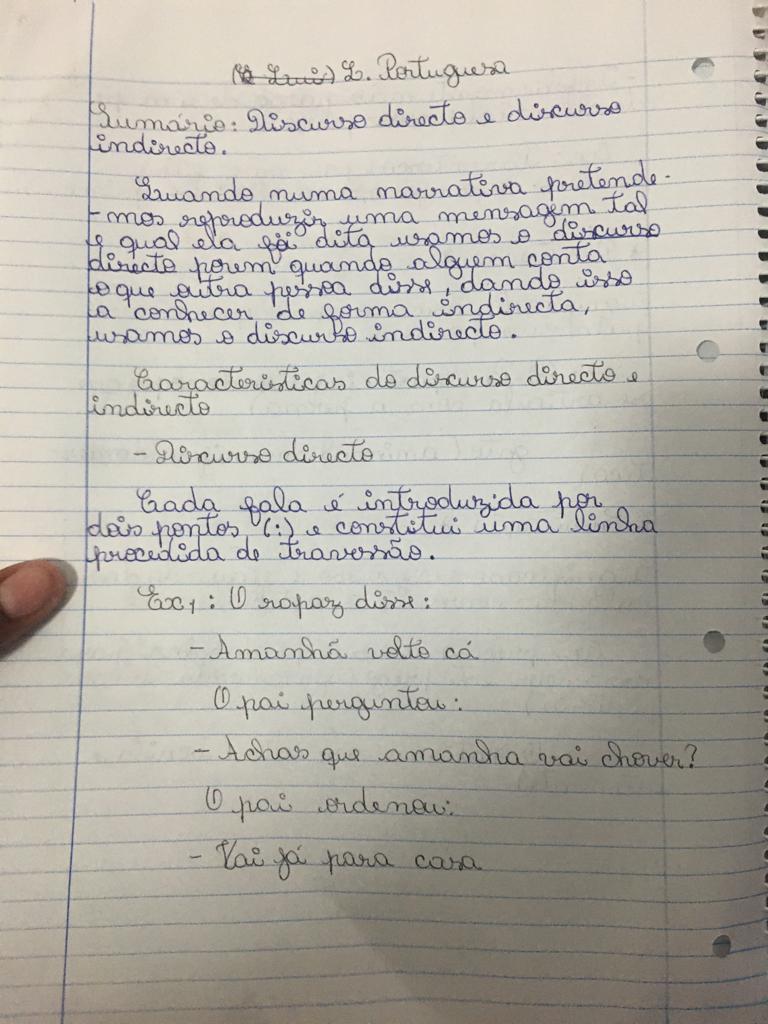 L. Portuguesa
Sumário: Discurso directo e discurso
indirecto.
Quando numa narrativa pretende-
-mos reproduzir uma mensagem tal
e qual ela foi dita usamos o discurso
directo porem quando alguem conta
o que outra pessoa disse, dando isso
a conhecer de forma indirecta,
usamos o discurso indirecto.
Caracteristicas do discurso directo e
indirecto
- Discurso directo
Cada fala é introduzida por
dois pontos (:) e constitui uma linha
procedida de travessão.
Ex1: O rapaz disse:
- Amanhã volto cá
O pai perguntou:
- Achas que amanha vai chover?
O pai ordenou:
- Vai já para casa